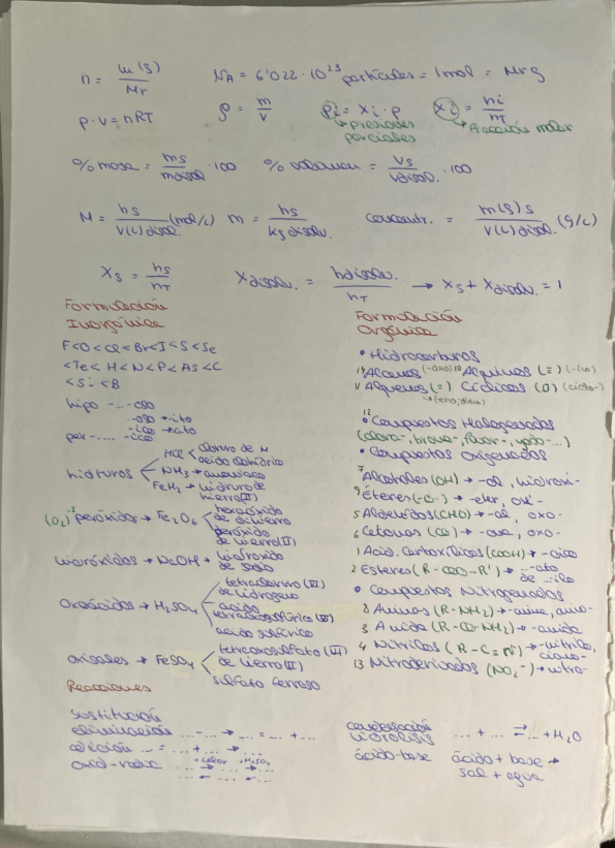 n = m(g)/Mr   NA = 6'022·10²³ partículas = 1mol = Mr g
p·v = nRT   ρ = m/v   Pi = xi · p   xi = ni/nT
→ Presiones parciales   → Fracción molar
% masa = ms/mdisol · 100   % volumen = Vs/Vdisol. · 100
M = ns/V(L)disol. (mol/L)   m = ns/kg disolv.   concentr. = m(g)s/V(L)disol. (g/L)
Xs = ns/nT   Xdisolv. = ndisolv./nT → Xs + Xdisolv. = 1
Formulación
Inorgánica
F<O<Cl<Br<I<S<Se
<Te<H<N<P<As<C
<Si<B
hipo -...-oso
...-oso → ito
...-ico → ato
per-.... -ico
hidruros
HCl < cloruro de H
ácido clorhídrico
NH₃ → amoniaco
FeH₂ → hidruro de
hierro(II)
(O₂)⁻² peróxidos → Fe₂O₆ < hexaóxido
de dihierro
peróxido
de hierro(II)
hidróxidos → NaOH → hidróxido
de sodio
Oxoácidos → H₂SO₄ < 
de hidrógeno
ácido
ácido sulfúrico
oxisales → FeSO₄ < tetraoxosulfato (VI)
de hierro(II)
sulfato ferroso
Reacciones
sustitución
eliminación ...-... → ...=... + ...
adición ...=... + ... → ...
oxid-redox
Formulación
Orgánica
• Hidrocarburos
Alcanos (-ano) 10 Alquinos (≡) (-ino)
11 Alquenos (=) Cíclicos (O) (ciclo-)
→ (eno, dieno)
12
• Compuestos Halogenados
(cloro-, bromo-, fluor-, yodo-...)
• Compuestos Oxigenados
7 Alcoholes (OH) → -ol, hidroxi-
9 Éteres (-O-) → -eter, oxi-
5 Aldehídos (CHO) → -al, oxo-
6 Cetonas (CO) → -ona, oxo-
1 Acid. Carboxílicos (COOH) → -oico
2 Ésteres (R-COO-R') → ...-ato
de ...-ilo
• Compuestos Nitrogenados
8 Aminas (R-NH₂) → -amina, amino-
3 Amida (R-CO-NH₂) → -amida
4 Nitrilos (R-C≡N) → -nitrilo,
ciano-
13 Nitroderivados (NO₂⁻) → nitro-
condensación
hidrólisis ... + ... ⇄ ... + H₂O
ácido-base ácido + base →
sal + agua